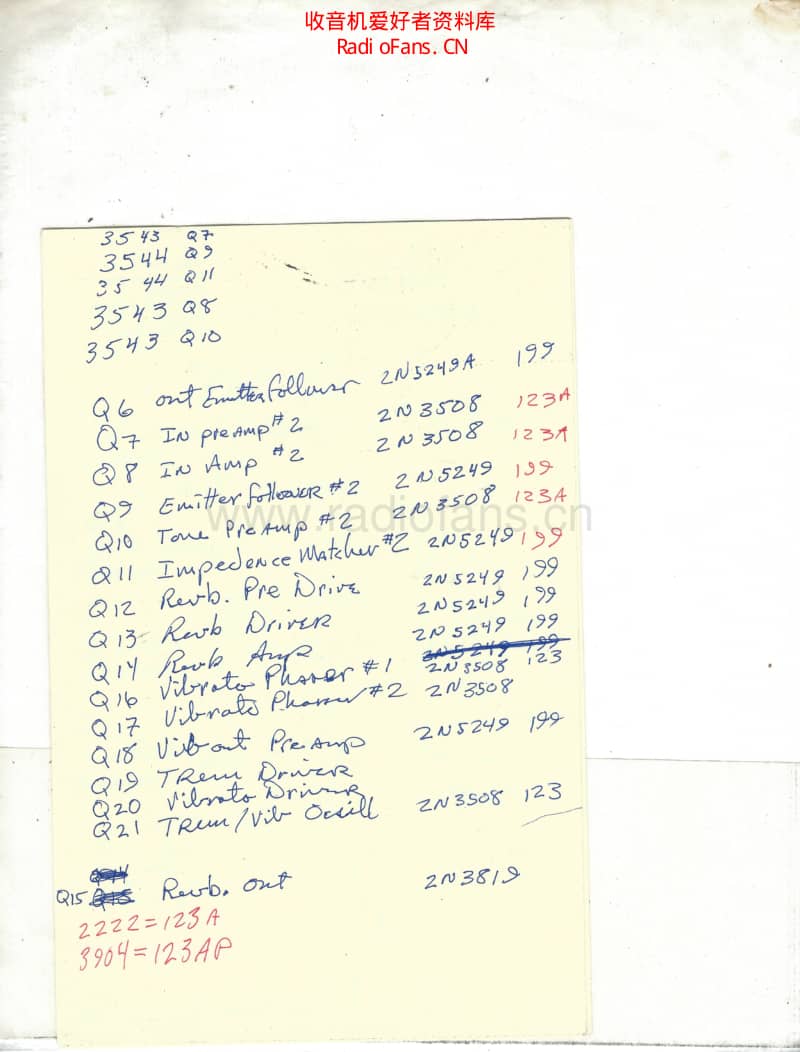 收音机爱好者资料库
Radi oFans. CN
3543 Q7
3544 Q9
3544 Q11
3543 Q8
3543 Q10
Q6 out Emitter follower 2N5249A 199
Q7 IN preAmp #2 2N3508 123A
Q8 IN Amp #2 2N3508 123A
Q9 Emitter follower #2 2N5249 199
Q10 Tone PreAmp #2 2N3508 123A
www.radiofans.cn
Q11 Impedence Matcher #2 2N5249 199
Q12 Revb. Pre Drive 2N5249 199
Q13 Revb Driver 2N5249 199
Q14 Revb Amp 2N5249 199
2N5249 199
Q16 Vibrato Phaser #1 2N3508 123
Q17 Vibrato Phaser #2 2N3508
Q18 Vib out PreAmp 2N5249 199
Q19 Trem Driver
Q20 Vibrato Driver
Q21 Trem/Vib Ocsill 2N3508 123
Q15 Revb. out 2N3819
2222=123A
3904=123AP